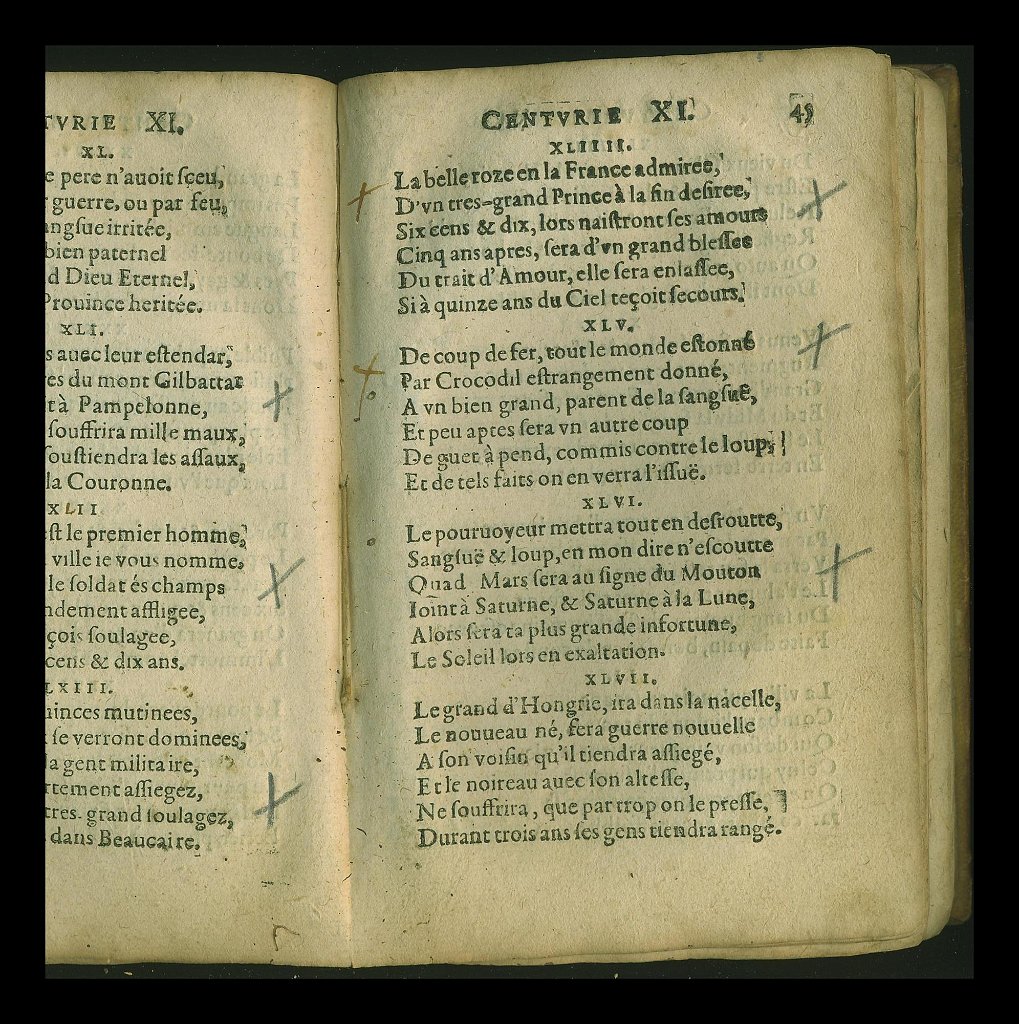 TVRIE XI.
XL.
e pere n'auoit ſçeu,
guerre, ou par feu,
angſue irritée,
bien paternel
d Dieu Eternel,
Prouince heritée.
XLI.
s auec leur eſtendar,
es du mont Gilbattar
t à Pampelonne,
ſouffrira mille maux,
ſouſtiendra les aſſaux,
la Couronne.
XLII
eſt le premier homme,
ville ie vous nomme,
le ſoldat és champs
ndement affligee,
çois ſoulagee,
cens & dix ans.
LXIII.
inces mutinees,
ſe verront dominees,
la gent militaire,
rtement aſſiegez,
tres-grand ſoulagez,
dans Beaucaire.
CENTVRIE XI. 49
XLIIII.
La belle roze en la France admiree,
D'vn tres-grand Prince à la fin deſiree,
Six cens & dix, lors naiſtront ſes amours
Cinq ans apres, ſera d'vn grand bleſſee
Du trait d'Amour, elle ſera enlaſſee,
Si à quinze ans du Ciel teçoit ſecours.
XLV.
De coup de fer, tout le monde eſtonné
Par Crocodil eſtrangement donné,
A vn bien grand, parent de la ſangſuë,
Et peu aptes ſera vn autre coup
De guet à pend, commis contre le loup,
Et de tels faits on en verra l'iſſuë.
XLVI.
Le pouruoyeur mettra tout en deſroutte,
Sangſuë & loup, en mon dire n'eſcoutte
Quad Mars ſera au ſigne du Mouton
Ioint à Saturne, & Saturne à la Lune,
Alors ſera ta plus grande infortune,
Le Soleil lors en exaltation.
XLVII.
Le grand d'Hongrie, ira dans la nacelle,
Le nouueau né, fera guerre nouuelle
A ſon voiſin qu'il tiendra aſſiegé,
Et le noireau auec ſon alteſſe,
Ne ſouffrira, que par trop on le preſſe,
Durant trois ans ſes gens tiendra rangé.